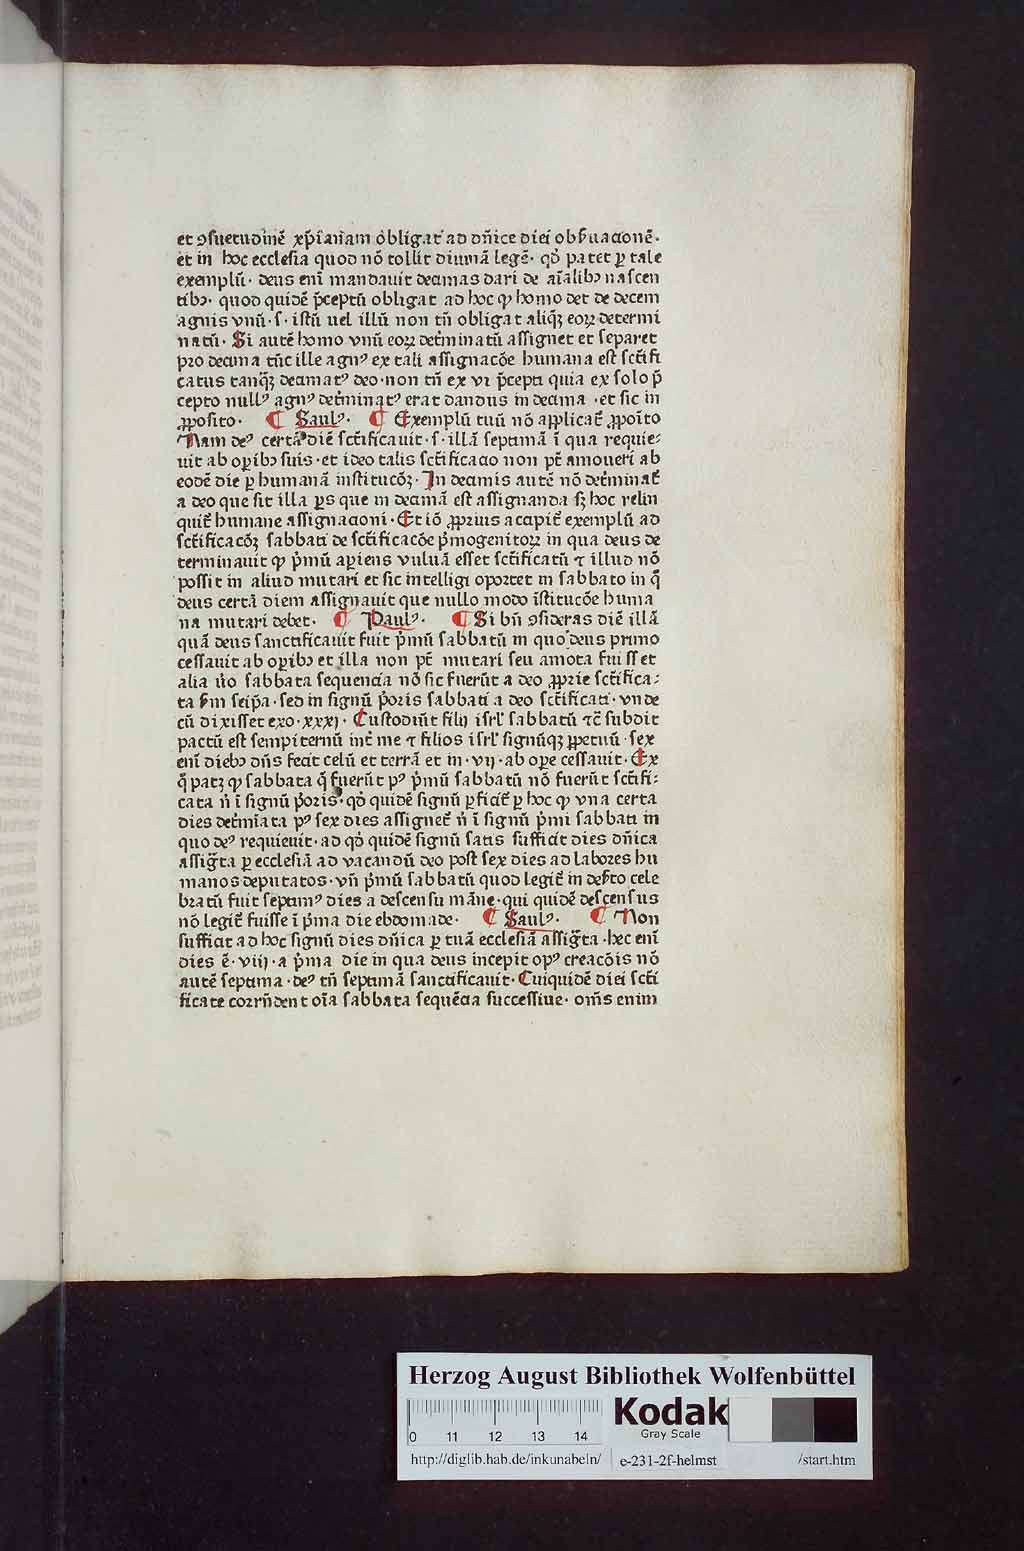 et ꝯsuetudinē xp̄ianam obligat ad dn̄ice diei obẜuacionē·
et in hoc ecclesia quod nō tollit diuinā legē· qđ patet ꝑ tale
exemplū· deus eni̅ mandauit decimas dari de ai̅alibꝫ nascen
tibꝫ· quod quidē p̄ceptū obligat ad hoc ꝙ homo det de decem
agnis vnū· s· istū uel illū non tn̄ obligat aliqȝ eoꝝ determi
natū· Si autē homo vnū eoꝝ det̄minatū assignet et separet
pro decima tūc ille agnꝰ ex tali assignacōe humana est sct̄ifi
catus tanqȝ decimatꝰ deo· non tn̄ ex vi p̄cepti quia ex solo p̄
cepto nullꝰ agnꝰ det̄minatꝰ erat dandus in decima · et sic in
ꝓposito· ¶ Saulꝰ· ¶ Exemplū tuū nō applicat̄ ꝓpoīto
Nam deꝰ certā diē sct̄ificauit· s· illā septimā ī qua requie⸗
uit ab oꝑibꝫ suis· et ideo talis sct̄ificacio non pt̄ amoueri ab
eodē die ꝑ humanā institucōꝫ· In decimis autē nō det̄minat̄
a deo que sit illa ꝑs que in decimā est assignanda sꝫ hoc relin
quit̄ humane assignacioni· Et iō ꝓprius accipit̄ exemplū ad
sct̄ificacōꝫ sabbati de sct̄ificacōe p̄mogenitoꝝ in qua deus de
terminauit ꝙ p̄mū aꝑiens vuluā esset sct̄ificatū ⁊ illud nō
possit in aliud mutari et sic intelligi oportet in sabbato in q̄
deus certā diem assignauit que nullo modo īstitucōe huma
na mutari debet· ¶ Paulꝰ· ¶ Si bn̄ ꝯsideras diē illā
quā deus sanctificauit fuit p̄mū sabbatū in quo deus primo
cessauit ab oꝑibꝫ et illa non pt̄ mutari seu amota fuisset
alia v̊o sabbata sequencia nō sic fuerūt a deo ꝓprie sct̄ifica⸗
ta ẜm seip̄a· sed in signū p̄oris sabbati a deo sct̄ificati· vnde
cū dixisset exo· xxxj· Custodiūt filij isrl' sabbatū ⁊c̄ subdit
pactū est sempiternū int̄ me ⁊ filios isrl' signūqȝ ꝑpetuū· sex
eni̅ diebꝫ dn̄s fecit celū et terrā et in· vij· ab oꝑe cessauit· Ex
q̄ patꝫ ꝙ sabbata q̄ fuerūt pꝰ p̄mū sabbatū nō fuerūt sct̄ifi⸗
cata n̄ ī signū p̄oris· qđ quidē signū ꝑficit̄ ꝑ hoc ꝙ vna certa
dies det̄mīata pꝰ sex dies assignet̄ n̄ ī signū p̄mi sabbati in
quo deꝰ requieuit· ad qđ quidē signū satis sufficit dies dn̄ica
assig̅ta ꝑ ecclesiā ad vacandū deo post sex dies ad labores hu
manos deputatos· vn̄ p̄mū sabbatū quod legit̄ in deẜto cele
bratū fuit septimꝰ dies a descensu māne· qui quidē descensus
nō legit̄ fuisse ī p̄ma die ebdomade· ¶ Saulꝰ· ¶ Non
sufficit ad hoc signū dies dn̄ica ꝑ tuā ecclesiā assig̅ta· hec eni̅
dies ē· viij· a p̄ma die in qua deus incepit opꝰ creacōis nō
autē septima· deꝰ tn̄ septimā sanctificauit· Cuiquidē diei sct̄i
ficate corrn̄dent oīa sabbata sequēcia successiue· om̄s enim
Herzog August Bibliothek Wolfenbüttel
0 11 12 13 14
Kodak
Gray Scale
http://diglib.hab.de/inkunabeln/ e-231-2f-helmst /start.htm